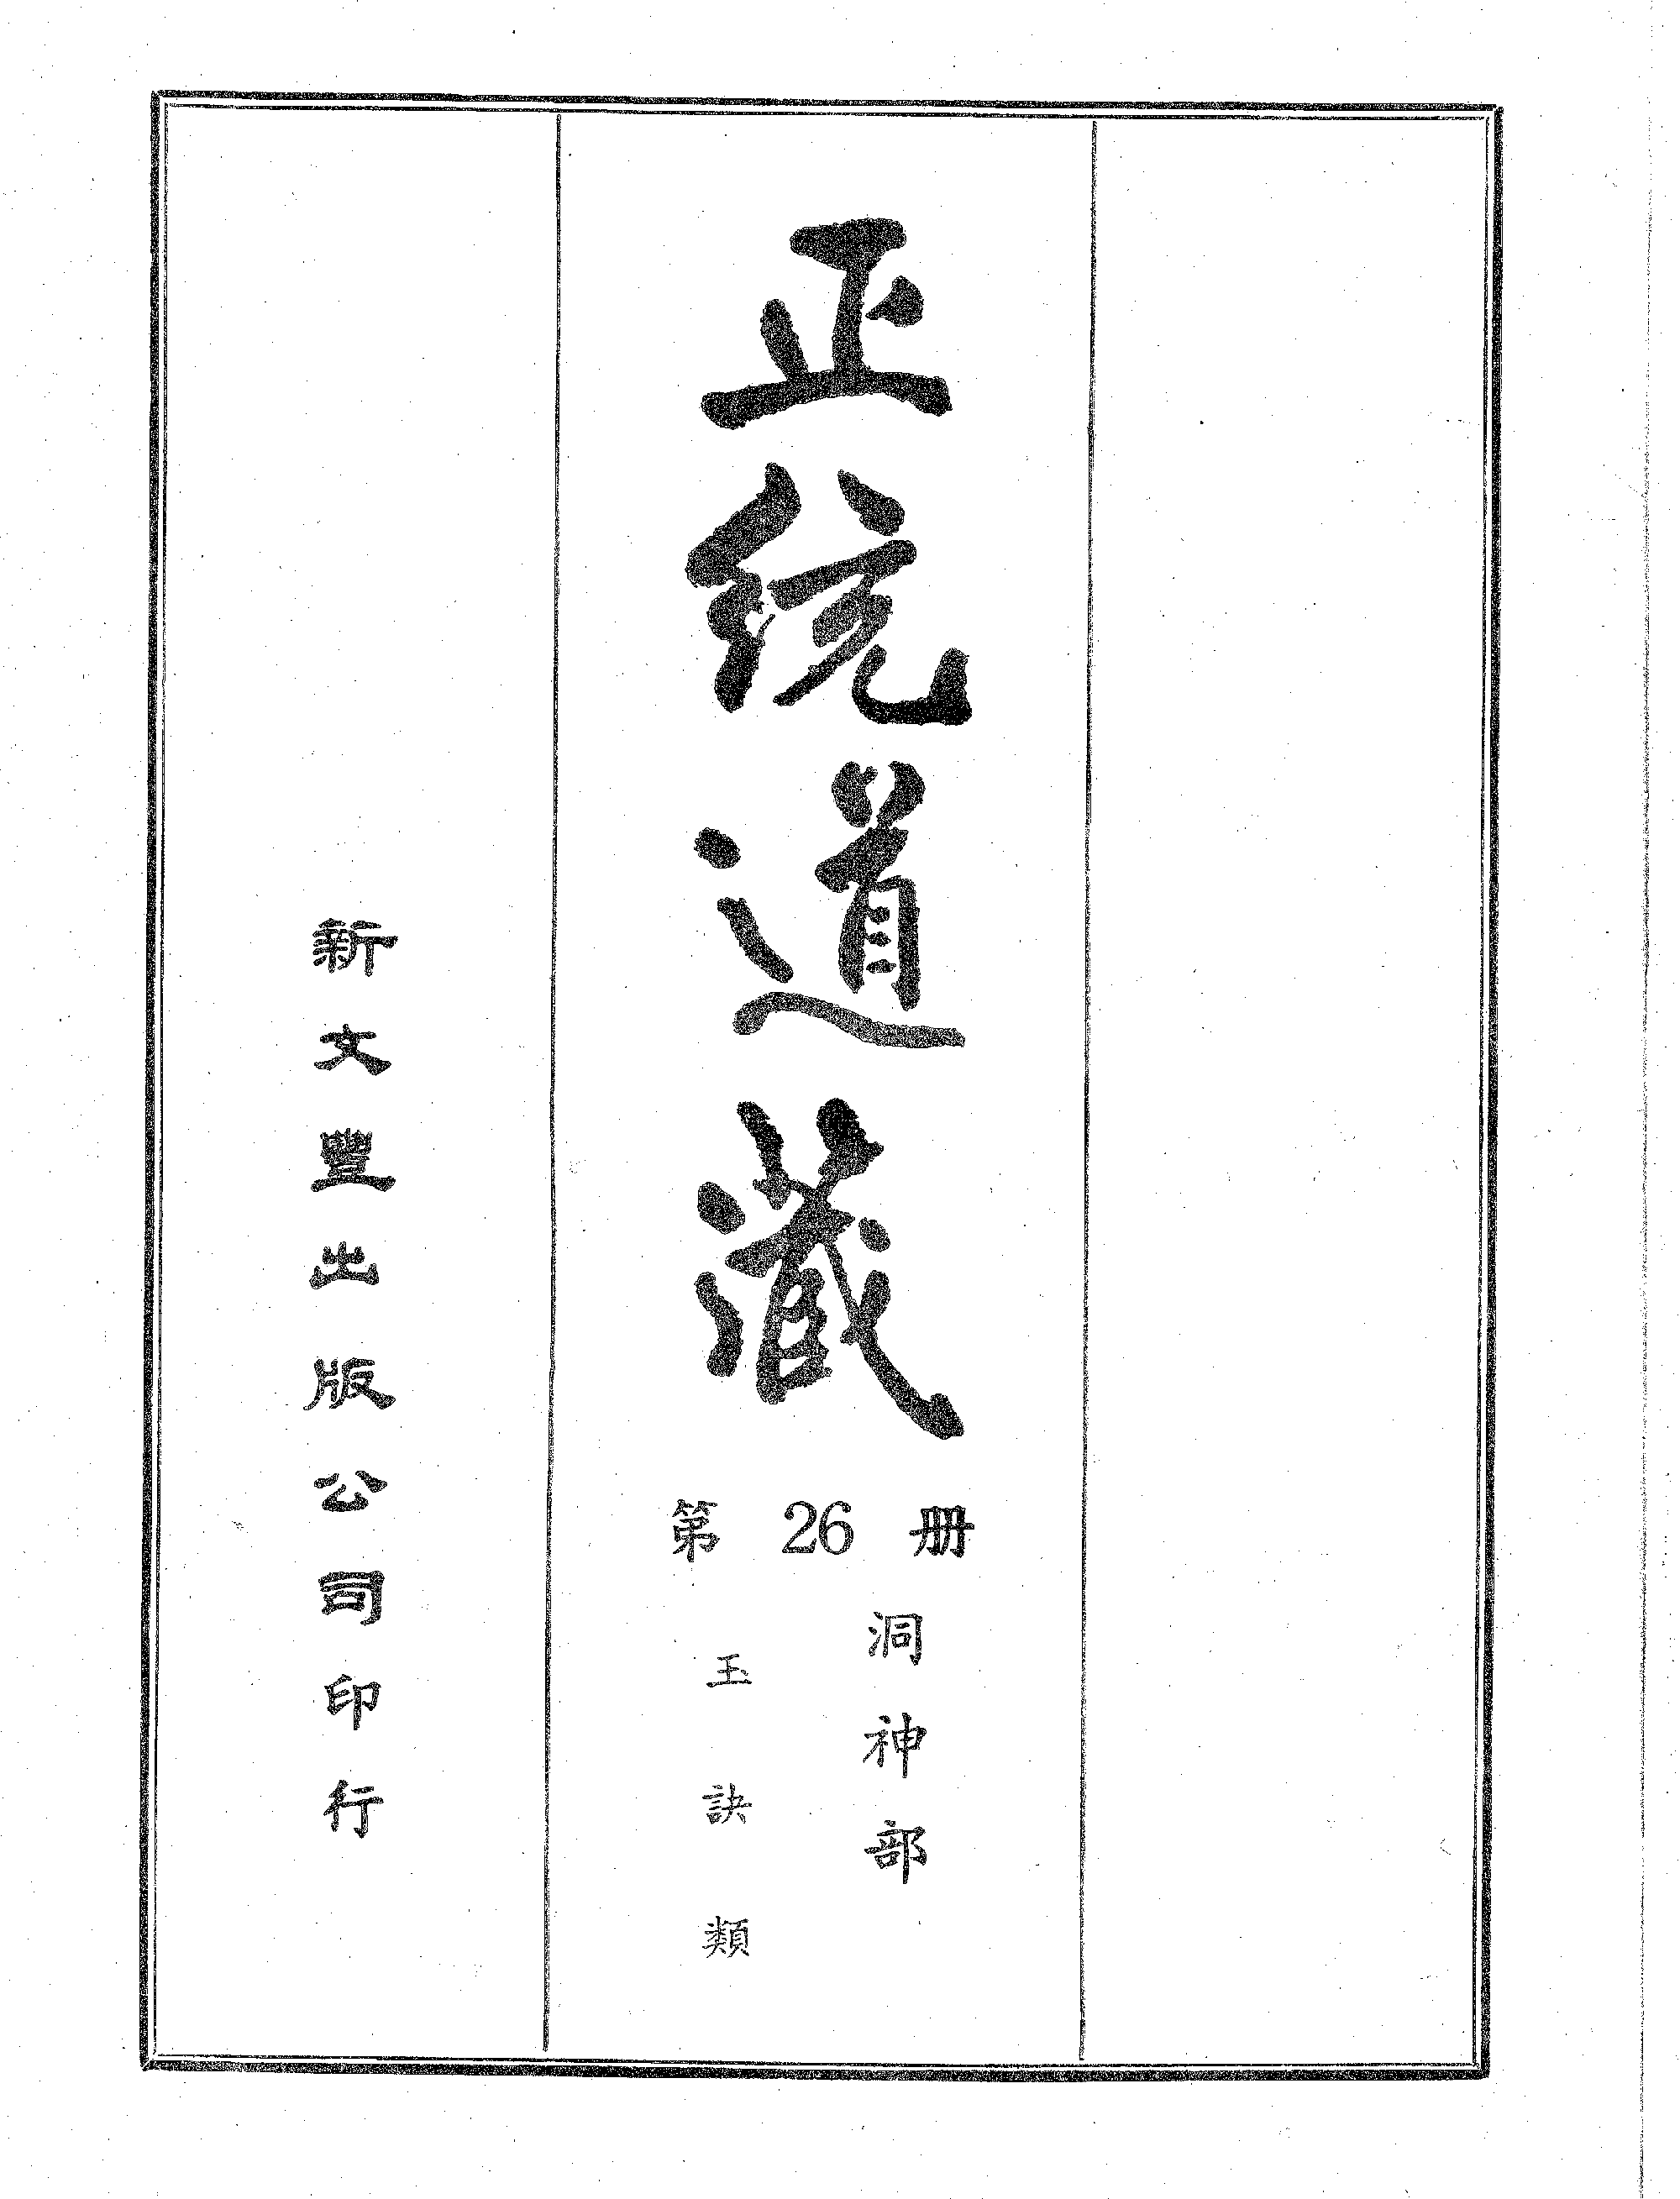 正統道藏
第26册
洞神部
玉訣類
新文豐出版公司印行